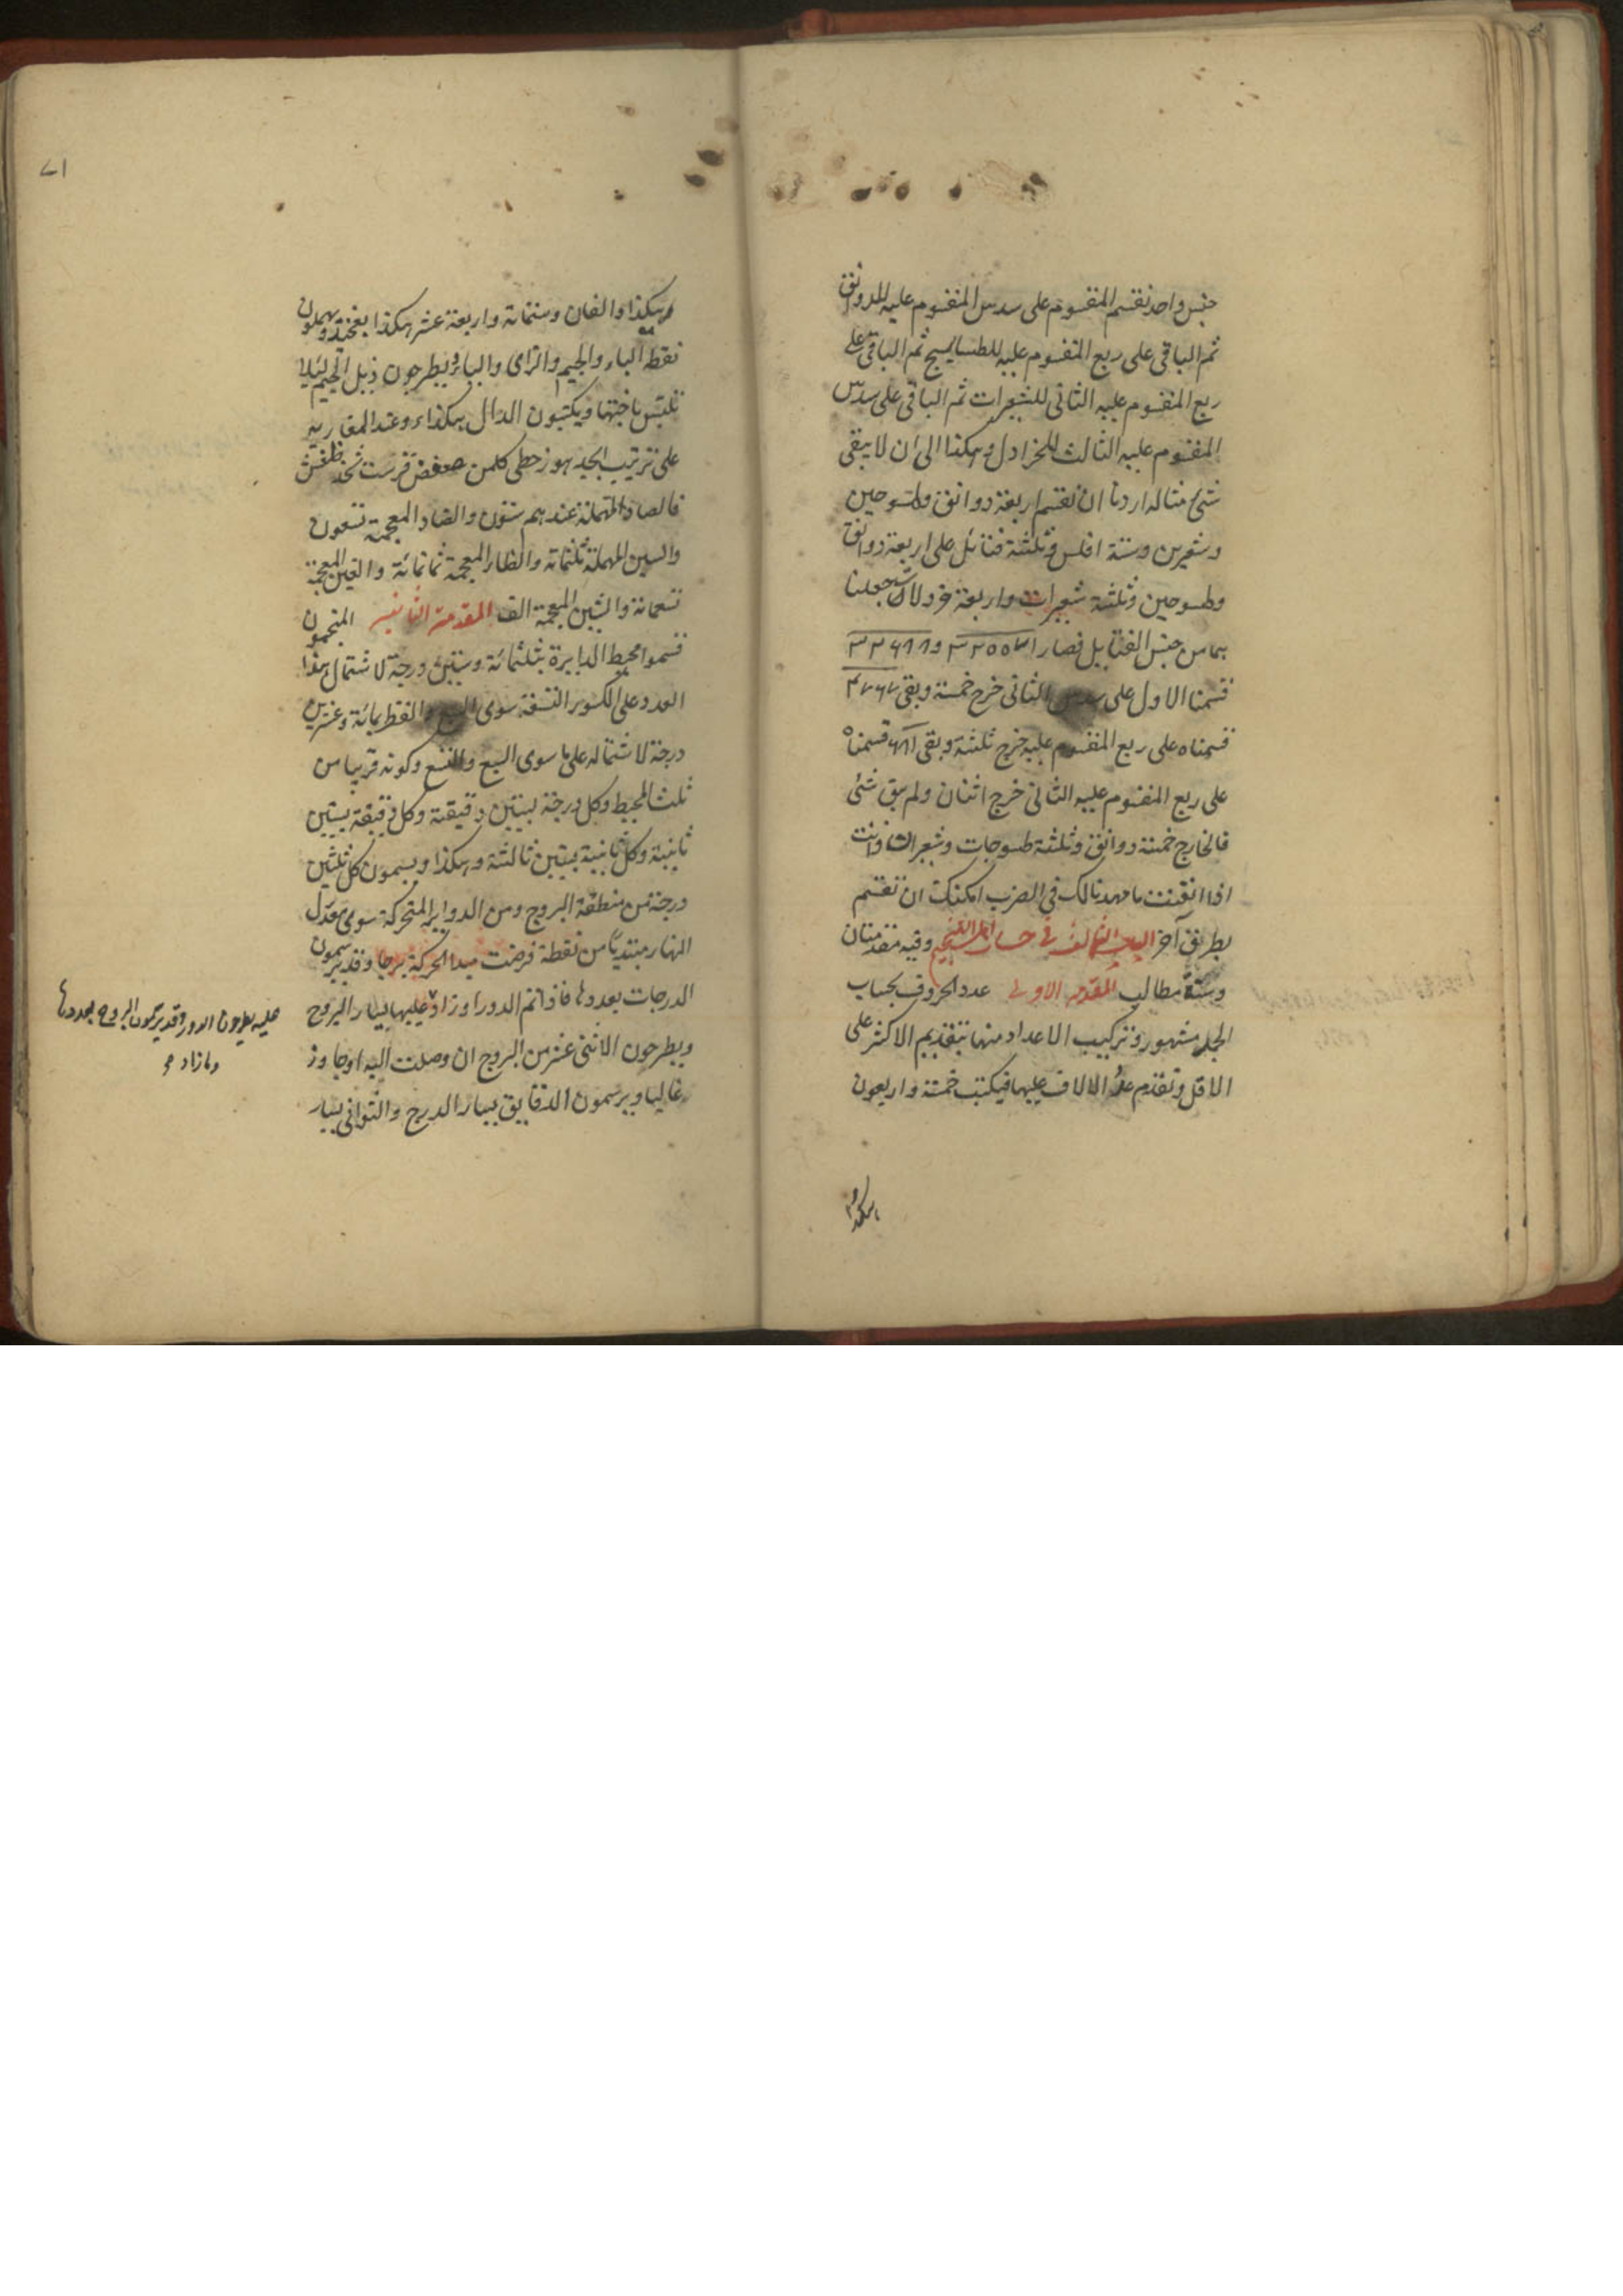 جنس واحد نقسم المقسوم على سدس المقسوم عليه للدوانق
ثم الباقى على ربع المقسوم عليه للطساسيج ثم الباقى على
ربع المقسوم عليه الثانى للشعيرات ثم الباقى على سدس
المقسوم عليه الثالث للخرادل وهكذا الى ان لا يبقى
شئ مثاله اردنا ان نقسم اربعة دوانق وطسوجين
وشعيرين وستة افلس وثلثة فتائل على اربعة دوانق
وطسوجين وثلثة شعيرات واربعة خردلات جعلنا
هما من جنس الفتايل فصارا
قسمنا الاول على سدس الثانى خرج خمسة وبقى
قسمناه على ربع المقسوم عليه خرج ثلثة وبقى قسمناه
على ربع المقسوم عليه الثانى خرج اثنان ولم يبق شئ
فالخارج خمسة دوانق وثلثة طسوجات وشعيرات وانت
اذا اتقنت ما مهدنا لك فى الضرب امكنك ان تقسم
بطريق آخر الباب الثالث فى حساب اهل التنجيم وفيه مقدمتان
وستة مطالب المقدمة الاولى عدد الحروف بحساب
الجمل مشهور وتركيب الاعداد منها بتقديم الاكثر على
الاقل وتقدم عدد الالاف عليها فيكتب خمسة واربعون
هكذا
٧١
هكذا والفان وستمائة واربعة عشر هكذا بغخيد ويهملون
نقط الباء والجيم والزاى والياء ويطرحون ذيل الجيم لئلا
تلتبس باختها ويكتبون الدال هكذا وعند المغاربة
على ترتيب ابجد هوز حطى كلمن صعفض قرست ثخذ ظغش
فالصاد المهملة عندهم ستون والضاد المعجمة تسعون
والسين المهملة ثلثمائة والظاء المعجمة ثمانمائة والغين المعجمة
تسعمائة والشين المعجمة الف المقدمة الثانية المنجمون
قسموا محيط الدايرة بثلثمائة وستين درجة لاشتمال هذا
العدد على الكسور التسعة سوى السبع والقطر بمائة وعشرين
درجة لاشتماله على ما سوى السبع والتسع وكونه قريبا من
ثلث المحيط وكل درجة بستين دقيقة وكل دقيقة بستين
ثانية وكل ثانية بستين ثالثة وهكذا ويسمون كل ثلثين
درجة من منطقة البروج ومن الدواير المتحركة سوى معدل
النهار مبتديا من نقطة فرضت مبدا الحركة برجا وقد يرسمون
الدرجات بعددها فاذا تم الدور او زاد عليها بيسار البروج
ويطرحون الاثنى عشر من البروج ان وصلت اليه او جاوز
غالبا ويرسمون الدقايق بيسار الدرج والثوانى بيسار
عليه يطرحون الدور وقد يرسمون البروج بعددها
وما زاد